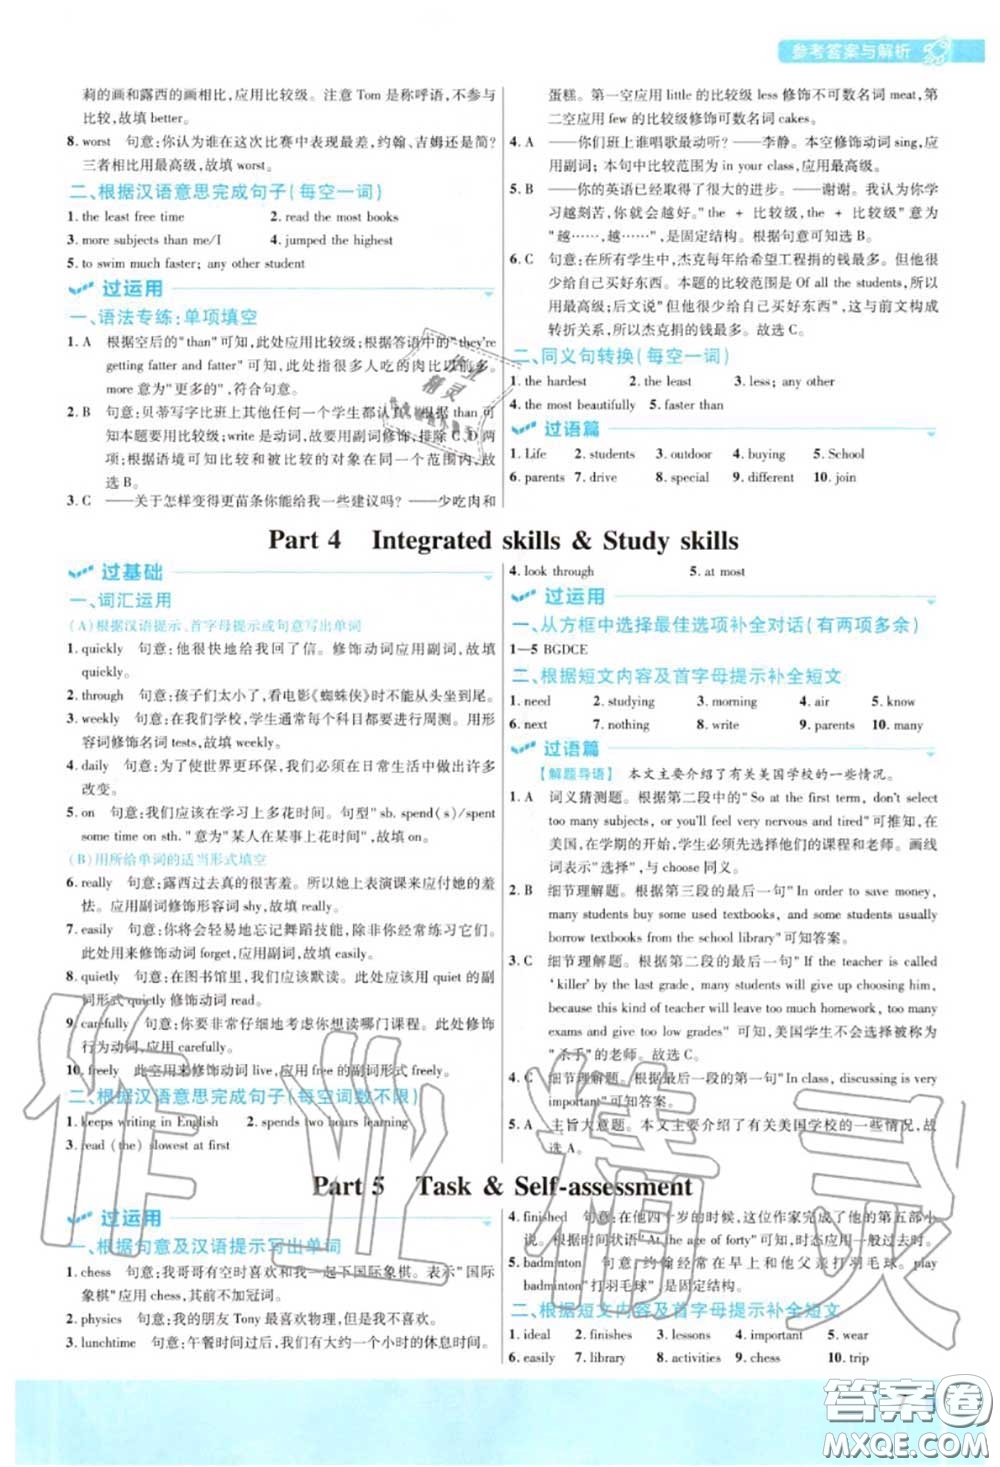 参考答案与解析
莉的画和露西的画相比,应用比较级。注意 Tom 是称呼语,不参与
比较,故填 better。
8. worst 句意:你认为谁在这次比赛中表现最差,约翰、吉姆还是秦?
三者相比用最高级,故填 worst。
二、根据汉语意思完成句子(每空一词)
1. the least free time 2. read the most books
3. more subjects than me/I 4. jumped the highest
5. to swim much faster; any other student
过运用
一、语法专练:单项填空
1. A 根据空后的"than"可知,此处应用比较级;根据答语中的"they're
getting fatter and fatter"可知,此指很多人吃的肉比以前多。
more 意为"更多的",符合句意。
2. B 句意:贝蒂写字比班上其他任何一个学生都认真。根据 than 可
知本题要用比较级;write 是动词,故要用副词修饰,排除 C、D 两
项;根据语境可知比较和被比较的对象在同一个范围内,故
选 B。
3. C ——关于怎样变得更苗条你能给我一些建议吗? ——少吃肉和
蛋糕。第一空应用 little 的比较级 less 修饰不可数名词 meat,第
二空应用 few 的比较级修饰可数名词 cakes。
4. A ——你们班上谁唱歌最动听? ——李静。本空修饰动词 sing,应
用副词;本句中比较范围为 in your class,应用最高级。
5. B ——你的英语已经取得了很大的进步。——谢谢。我认为你学
习越刻苦,你就会越好。"the + 比较级,the + 比较级"意为
"越……,越……",是固定结构。根据句意可知选 B。
6. C 句意:在所有学生中,杰克每年给希望工程捐的钱最多。但他很
少给自己买好东西。本题的比较范围是 Of all the students,所以
用最高级;后文说"但他很少给自己买好东西",这与前文构成
转折关系,所以杰克捐的钱最多。故选 C。
二、同义句转换(每空一词)
1. the hardest 2. the least 3. less; any other
4. the most beautifully 5. faster than
过语篇
1. Life 2. students 3. outdoor 4. buying 5. School
6. parents 7. drive 8. special 9. different 10. join
Part 4 Integrated skills & Study skills
过基础
一、词汇运用
(A)根据汉语提示、首字母提示或句意写出单词
1. quickly 句意:他很快地给我回了信。修饰动词应用副词,故填
quickly。
2. through 句意:孩子们太小了,看电影《蜘蛛侠》时不能从头看到尾。
3. weekly 句意:在我们学校,学生通常每个科目都要进行周测。用形
容词修饰名词 tests,故填 weekly。
4. daily 句意:为了使世界更环保,我们必须在日常生活中做出许多
改变。
5. on 句意:我们应该在学习上多花时间。句型"sb. spend(s)/spent
some time on sth. "意为"某人在某事上花时间",故填 on。
(B)用所给单词的适当形式填空
6. really 句意:露西过去真的很害羞。所以她上表演课来应付她的羞
怯。应用副词修饰形容词 shy,故填 really。
7. easily 句意:你将会轻易地忘记舞蹈技能,除非你经常练习它们。
此处用来修饰动词 forget,应用副词,故填 easily。
8. quietly 句意:在图书馆里,我们应该默读。此处应用 quiet 的副
词形式 quietly 修饰动词 read。
9. carefully 句意:你要非常仔细地考虑你想读哪门课程。此处修饰
行为动词,应用 carefully。
10. freely 此空用来修饰动词 live,应用 free 的副词形式 freely。
二、根据汉语意思完成句子(每空词数不限)
1. keeps writing in English 2. spends two hours learning
3. read (the) slowest at first
4. look through 5. at most
过运用
一、从方框中选择最佳选项补全对话(有两项多余)
1—5 BGDCE
二、根据短文内容及首字母提示补全短文
1. need 2. studying 3. morning 4. air 5. know
6. next 7. nothing 8. write 9. parents 10. many
过语篇
【解题导语】 本文主要介绍了有关美国学校的一些情况。
1. A 词义猜测题。根据第二段中的"So at the first term, don't select
too many subjects, or you'll feel very nervous and tired"可推知,在
美国,在学期的开始,学生必须先选择他们的课程和老师。画线
词表示"选择",与 choose 同义。
2. B 细节理解题。根据第三段的最后一句"In order to save money,
many students buy some used textbooks, and some students usually
borrow textbooks from the school library"可知答案。
3. C 细节理解题。根据第二段的最后一句"If the teacher is called
'killer' by the last grade, many students will give up choosing him,
because this kind of teacher will leave too much homework, too many
exams and give too low grades" 可知,美国学生不应该选被称为
"杀手"的老师。故选 C。
4. C 细节理解题。根据最后一段的第一句"In class, discussing is very
important"可知答案。
5. A 主旨大意题。本文主要介绍了有关美国学校的一些情况。故
选 A。
Part 5 Task & Self-assessment
过运用
一、根据句意及汉语提示写出单词
1. chess 句意:我哥哥有空时喜欢和我一起下国际象棋。表示"国际
象棋"应用 chess,其前不加冠词。
2. physics 句意:我的朋友 Tony 最喜欢物理,但是我喜欢数学。
3. lunchtime 句意:午餐时间过后,我们大约有一个小时的休息时间。
4. finished 句意:在他四十岁的时候,这位作家完成了他的第五部小
说。根据时间状语"At the age of forty"可知,时态应用一般过去时。
5. badminton 句意:约翰经常在早上和他父亲打羽毛球。play
badminton"打羽毛球"是固定结构。
二、根据短文内容及首字母提示补全短文
1. ideal 2. finishes 3. lessons 4. important 5. wear
6. easily 7. library 8. activities 9. chess 10. trip
作业精灵
答案圈
MXQE.COM